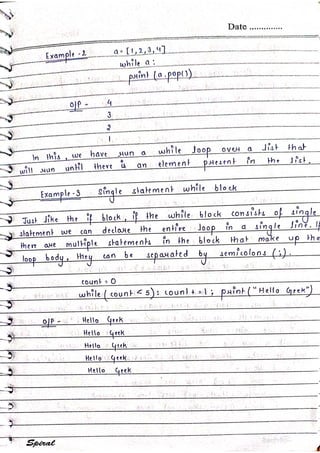 Date ..............
Example - 2 a = [1,2,3,4]
while a :
print (a.pop())
O/P - 4
3
2
1
In this , we have run a while loop over a list that
will run until there is an element present in the list.
Example - 3 Single statement while block
Just like the if block , if the while block consists of single
statement we can declare the entire loop in a single line. If
there are multiple statements in the block that make up the
loop body , they can be separated by semicolons (;).
count = 0
while ( count < 5) : count + = 1 ; print ("Hello Geek")
O/P - Hello Geek
Hello Geek
Hello Geek
Hello Geek
Hello Geek
Speral